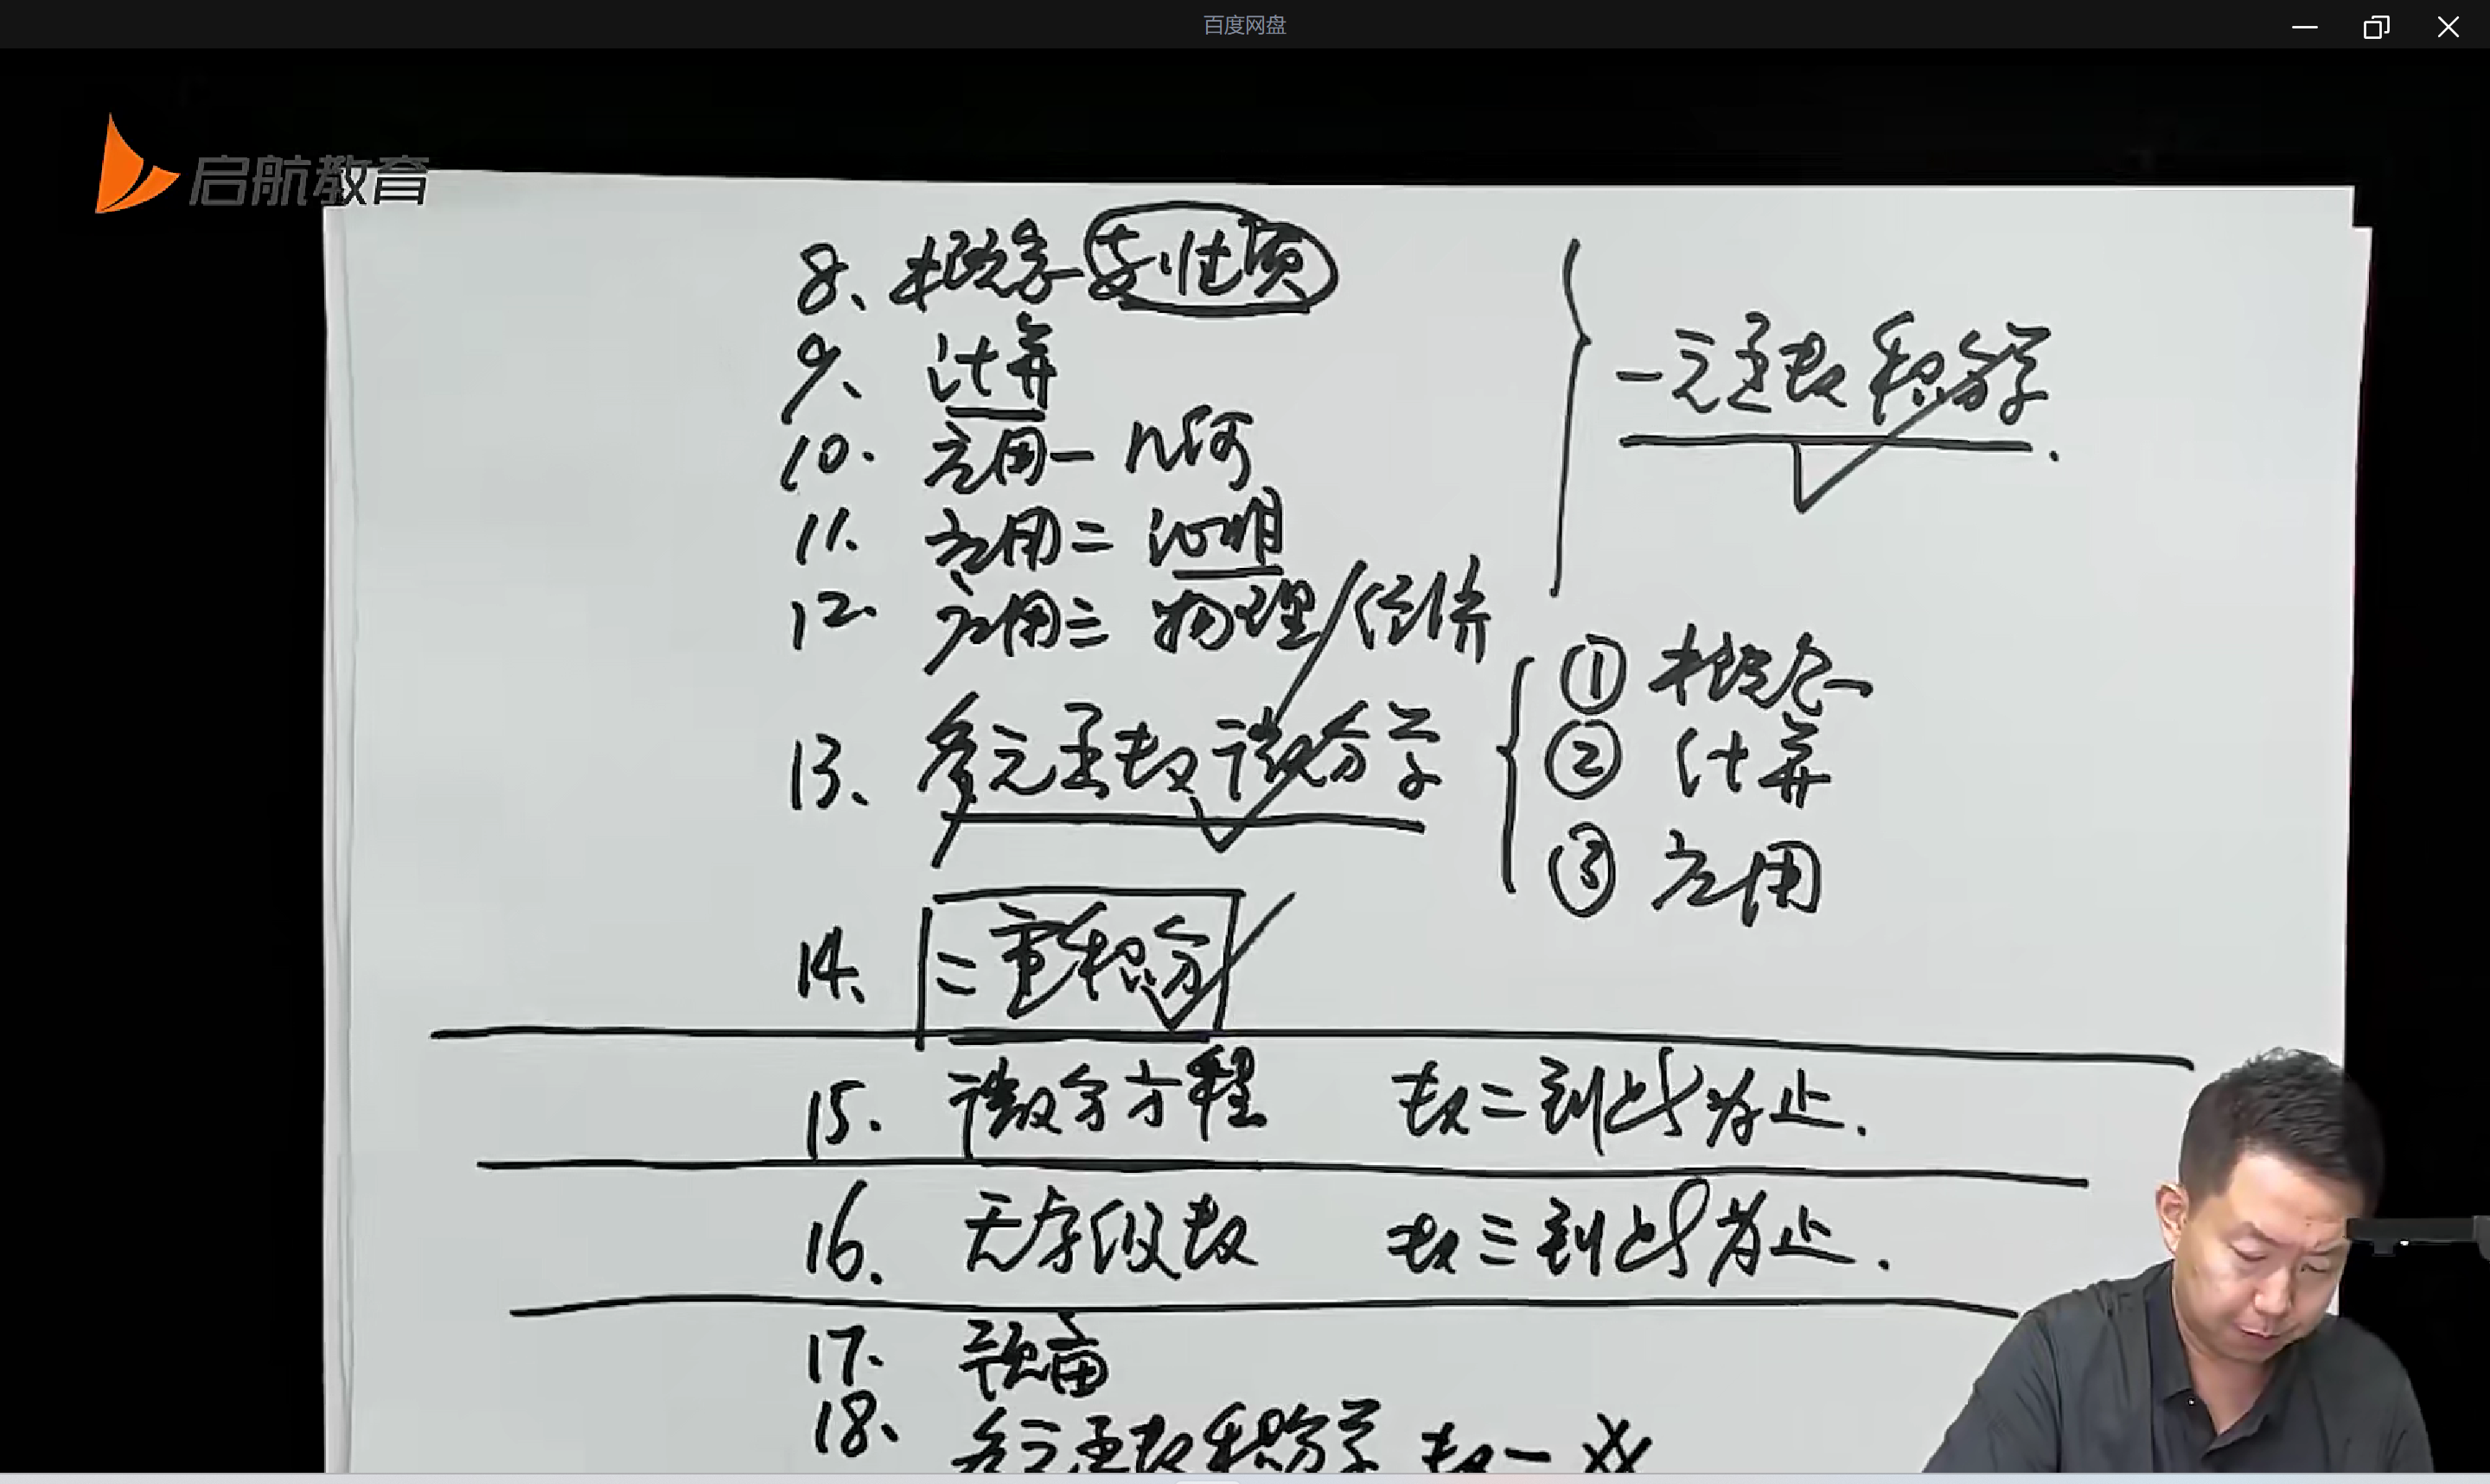 百度网盘
启航教育
8、概念与性质
9、计算
一元函数积分学.
10. 应用一 几何
11. 应用二 证明
12. 应用三 物理/经济
13、多元函数微分学
① 概念
② 计算
③ 应用
14、二重积分
15. 微分方程 数二到此为止.
16. 无穷级数 数三到此为止.
17. 预备
18、多元函数积分学 数一